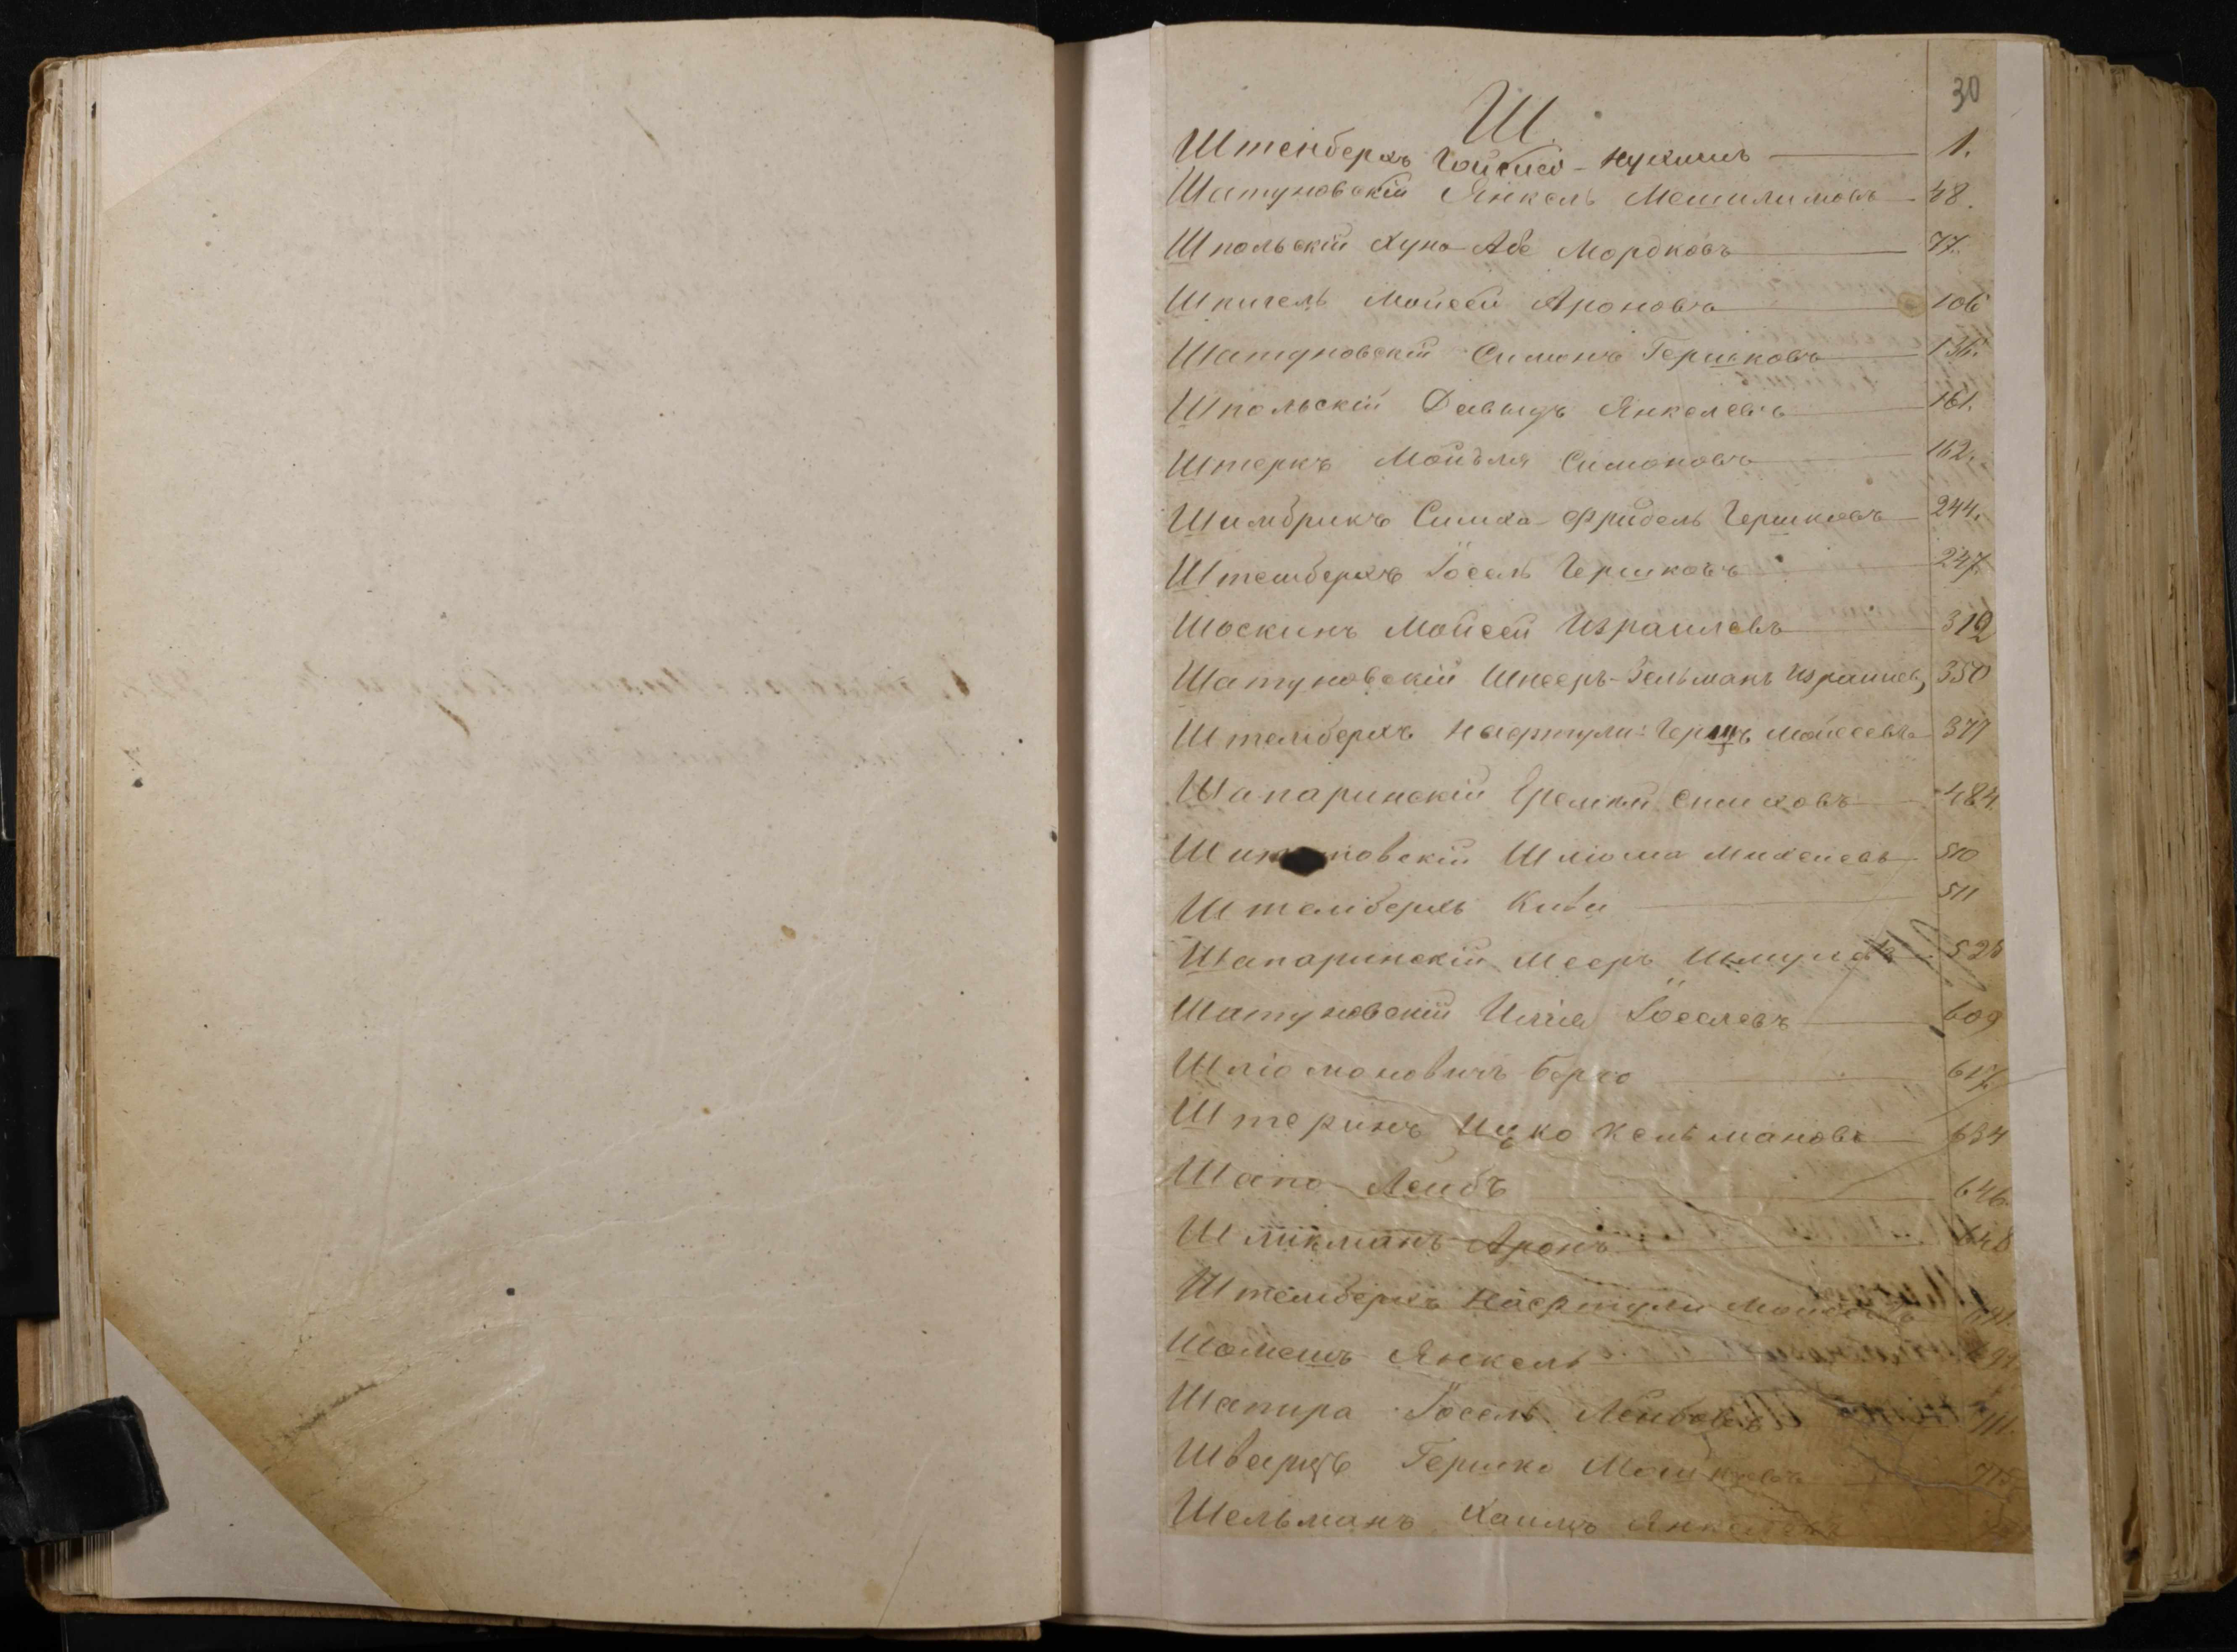 30
Ш.
Штенберхъ Нухимъ 1.
Шатуновскій Янкель Мешилимовъ 48.
Шпольскій Хуна Аба Мордковъ 77.
Шпигель Мойсей Ароновъ 106
Шатуновскій Симонъ Гершковъ 136.
Шпольскій Давыдъ Янкелевъ 161.
Штеркъ Симоновъ 162.
Шимбрикъ Симха-Фридель Гершковъ 244.
Штемберхъ Іосель Гершковъ 247.
Шоскинъ Мойсей Израилевъ 312
Шатуновскій Шнееръ-Зельманъ Израилев 350
Штемберхъ Нафтули-Гершъ Мойсеевъ 377
Шапаринскій Симховъ 484
Шліома Михелевъ 510
Штемберхъ Киви 511
Шапаринскій Мееръ Шмулевъ 525
Шатуновскій Илія Іоселевъ 609
Шліомовичъ Берко 617.
Штеринъ Ицко Кельмановъ 634
Шапо Лейбъ 646.
Шликманъ Аронъ 648
Штемберхъ Нафтули
Шомешъ Янкель
Шапира Іосель Лейбовъ 711.
Шварцъ Гершко Мошковъ 715
Шельманъ Хаимъ Янкелевъ